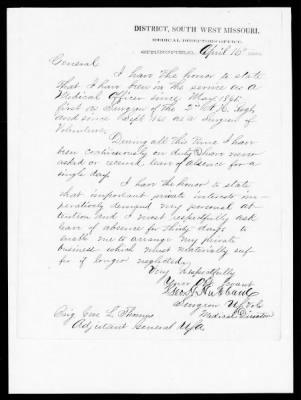 DISTRICT, SOUTH WEST MISSOURI.
MEDICAL DIRECTOR'S OFFICE.
SPRINGFIELD, April 16th
General
I have the honor to state
that I have been in the service as a
Medical Officer since May 1861.
first as Surgeon of the 2nd
and since Sept 1861 as a Surgeon of
Volunteers.
During all this time I have
been continuously on duty & have never
asked or received leave of absence for a
single day.
I have the honor to state
that important private interests im-
peratively demand my personal at-
tention and I most respectfully ask
leave of absence for thirty days to
enable me to arrange my private
business which must materially suf-
fer if longer neglected.
Very respectfully
Your Obt Servant
Surgeon U.S. Vols
Medical Director
Brig Gen L. Thomas
Adjutant General USA